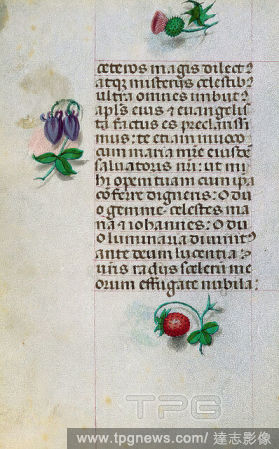 ceteros magis dilect⁹
atq; misterijs celestib⁹
ultra omnes imbut⁹
apl's eius ⁊ euangelis
ta factus es preclarissi
mus: te etiam inuoco
cum maria mr̄e eiusdē
saluatoris nr̄i: ut mi
hi opem tuam cum ip̄a
cōferre digneris: O du
o gemme celestes ma
ria et iohannes: O du
o luminaria diuinit⁹
ante deum lucentia:
uris radijs scelerū me
orum effugate nubila:
TPG
www.tpgnews.com/ 達志影像